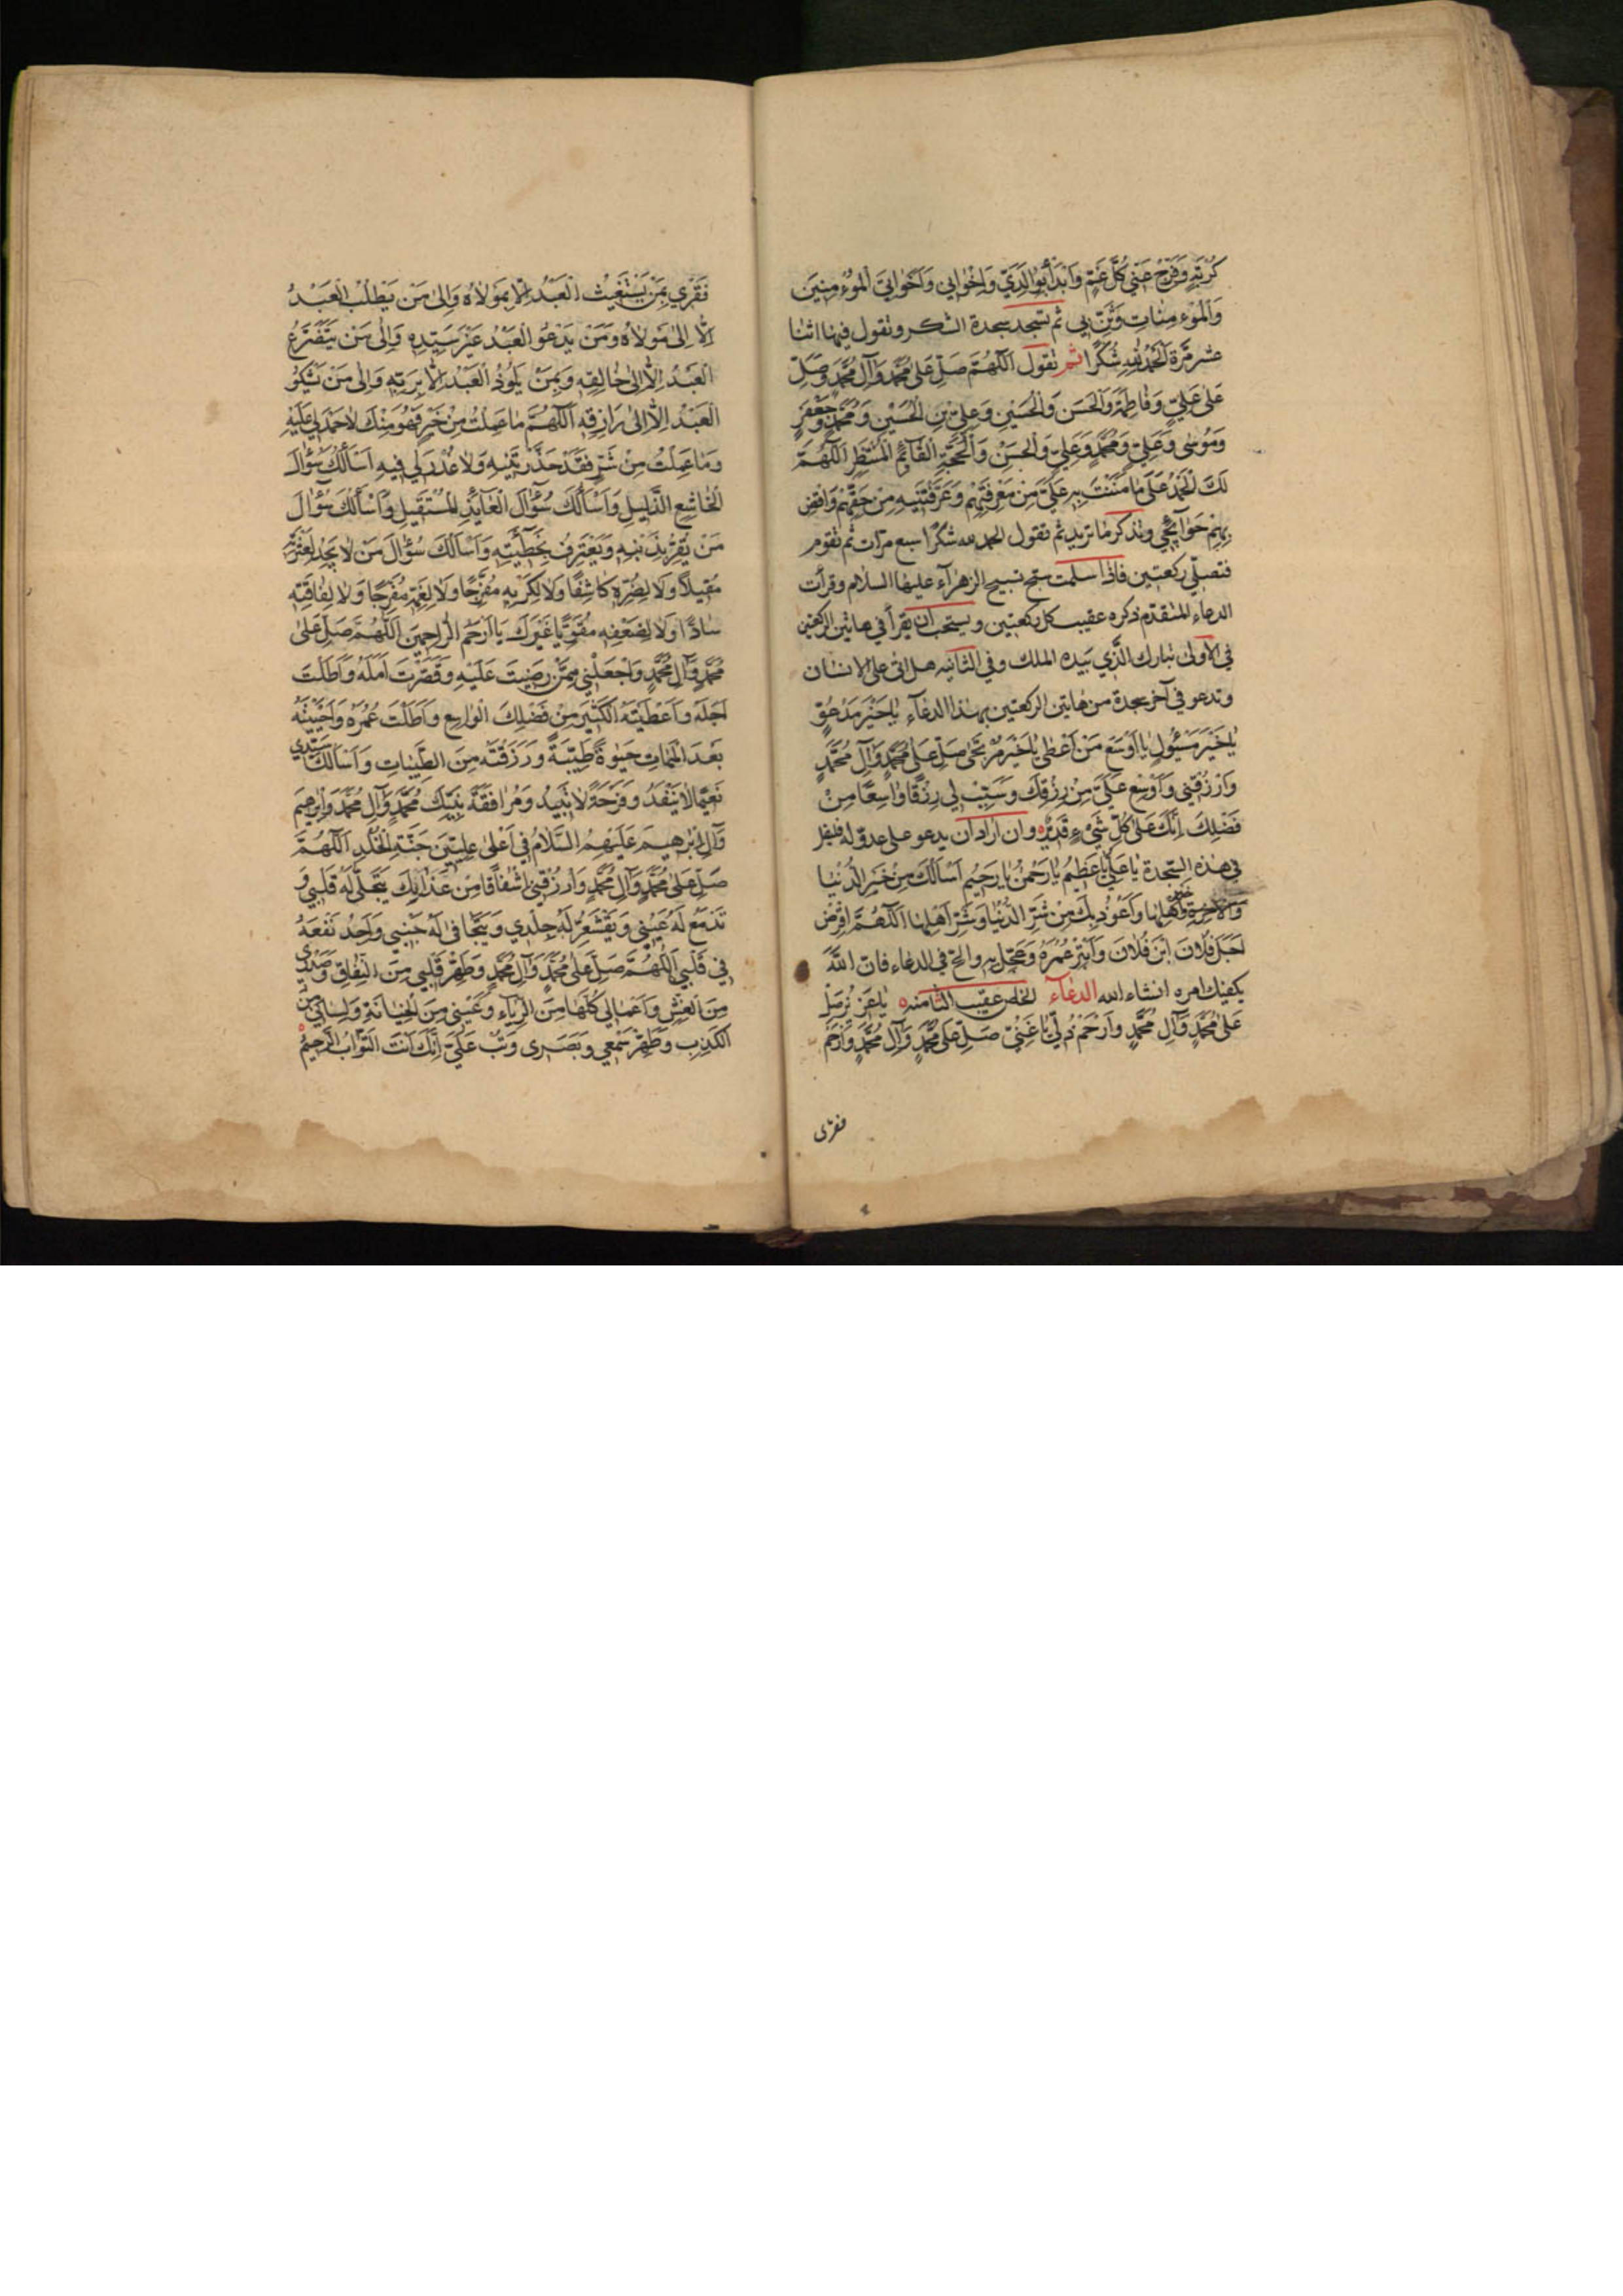 كُرْبَتِهِ وَفَرِّجْ عَنّي كُلَّ غَمٍّ وَابْدَأْ بِوالِدَيَّ وَاِخْوٰاني وَاَخَوٰاتيَ الْمُوءْمِنِينَ
وَالْمُوءْمِنٰاتِ وَثَنِّ بي ثم تسجد سجدة الشكر وتقول فيها اثنتا
عشر مرّة اَلْحَمْدُ لِلّٰهِ شُكْرًا ثم تقول اَللّٰهُمَّ صَلِّ عَلىٰ مُحَمَّدٍ وَآلِ مُحَمَّدٍ وَصَلِّ
عَلىٰ عَلِيٍّ وَفٰاطِمَةَ وَالْحَسَنِ وَالْحُسَيْنِ وَعَلِيِّ بْنِ الْحُسَيْنِ وَمُحَمَّدٍ وَجَعْفَرٍ
وَمُوسىٰ وَعَلِيٍّ وَمُحَمَّدٍ وَعَلِيٍّ وَالْحَسَنِ وَالْحُجَّةِ الْقٰآئِمِ الْمُنْتَظَرِ اَللّٰهُمَّ
لَكَ الْحَمْدُ عَلىٰ مٰا مَنَنْتَ بِهِ عَلَيَّ مِنْ مَعْرِفَتِهِمْ وَعَرَّفْتَنيهِ مِنْ حَقِّهِمْ وَاقْضِ
بِهِمْ حَوٰآئِجي وتذكر ما تريد ثم تقول الحمد لله شكرًا سبع مرات ثم تقوم
فتصلّي ركعتين فاذا سلمت سبّح تسبيح الزهرآء عليها السلام وقرأت
الدعاء المتقدم ذكره عقيب كل ركعتين ويستحب ان يقرأ في هاتين الركعتين
في الاولى تبارك الذي بيده الملك وفي الثانيه هل اتى على الانسان
وتدعو في آخر سجدة من هاتين الركعتين بهذا الدعآء يٰا خَيْرَ مَدْعُوٍّ
يٰا خَيْرَ مَسْئُولٍ يٰا اَوْسَعَ مَنْ اَعْطىٰ يٰا خَيْرَ مُرْتَجىٰ صَلِّ عَلىٰ مُحَمَّدٍ وَآلِ مُحَمَّدٍ
وَارْزُقْني وَاَوْسِعْ عَلَيَّ مِنْ رِزْقِكَ وَسَبِّبْ لي رِزْقًا وٰاسِعًا مِنْ
فَضْلِكَ اِنَّكَ عَلىٰ كُلِّ شَيْءٍ قَديرٌ وان اراد ان يدعو على عدوّ له فليقل
في هذه السجدة يٰا عَلِيُّ يٰا عَظيمُ يٰا رَحْمٰنُ يٰا رَحيمُ اَسْأَلُكَ مِنْ خَيْرِ الدُّنْيٰا
وَخَيْرِ اَهْلِهٰا وَاَعُوذُ بِكَ مِنْ شَرِّ الدُّنْيٰا وَشَرِّ اَهْلِهٰا اَللّٰهُمَّ اقْرِضْ
اَجَلَ فُلٰانَ ابْنَ فُلٰانَ وَابْتُرْ عُمْرَهُ وَعَجِّلْ بِهِ والحّ في الدعاء فان اللّٰه
يكفيك امره انشاء الله الدعآء الخاص عقيب الثامنه يٰا عَزيزُ صَلِّ
عَلىٰ مُحَمَّدٍ وَآلِ مُحَمَّدٍ وَارْحَمْ ذُلّي يٰا غَنِيُّ صَلِّ عَلىٰ مُحَمَّدٍ وَآلِ مُحَمَّدٍ وَارْحَمْ
فقرى
فَقْري بِمَنْ يَسْتَغيثُ الْعَبْدُ اِلّٰا بِمَوْلٰاهُ وَاِلىٰ مَنْ يَطْلُبُ الْعَبْدُ
اِلّٰا اِلىٰ مَوْلٰاهُ وَمَنْ يَدْعُو الْعَبْدُ غَيْرَ سَيِّدِهِ وَاِلىٰ مَنْ يَتَضَرَّعُ
الْعَبْدُ اِلّٰا اِلىٰ خٰالِقِهِ وَبِمَنْ يَلُوذُ الْعَبْدُ اِلّٰا بِرَبِّهِ وَاِلىٰ مَنْ يَشْكُو
الْعَبْدُ اِلّٰا اِلىٰ رٰازِقِهِ اَللّٰهُمَّ مٰا عَمِلْتُ مِنْ خَيْرٍ فَهُوَ مِنْكَ لٰا حَمْدَ لي عَلَيْهِ
وَمٰا عَمِلْتُ مِنْ شَرٍّ فَقَدْ حَذَّرْتَنيهِ وَلٰا عُذْرَ لي فيهِ اَسْأَلُكَ سُؤٰالَ
الْخٰاشِعِ الذَّليلِ وَاَسْأَلُكَ سُؤٰالَ الْعٰآئِذِ الْمُسْتَقيلِ وَاَسْأَلُكَ سُؤٰالَ
مَنْ يُقِرُّ بِذَنْبِهِ وَيَعْتَرِفُ بِخَطيئَتِهِ وَاَسْأَلُكَ سُؤٰالَ مَنْ لٰا يَجِدُ لِعَثْرَتِهِ
مُقيلًا وَلٰا لِضُرِّهِ كٰاشِفًا وَلٰا لِكَرْبِهِ مُفَرِّجًا وَلٰا لِغَمِّهِ مُفَرِّجًا وَلٰا لِفٰاقَتِهِ
سٰادًّا وَلٰا لِضَعْفِهِ مُقَوِّيًا غَيْرَكَ يٰا اَرْحَمَ الرّٰاحِمينَ اَللّٰهُمَّ صَلِّ عَلىٰ
مُحَمَّدٍ وَآلِ مُحَمَّدٍ وَاجْعَلْني مِمَّنْ رَضيتَ عَلَيْهِ وَقَصَّرْتَ اَمَلَهُ وَاَطَلْتَ
اَجَلَهُ وَاَعْطَيْتَهُ الْكَثيرَ مِنْ فَضْلِكَ الْوٰاسِعِ وَاَطَلْتَ عُمُرَهُ وَاَحْيَيْتَهُ
بَعْدَ الْمَمٰاتِ حَيٰوةً طَيِّبَةً وَرَزَقْتَهُ مِنَ الطَّيِّبٰاتِ وَاَسْأَلُكَ سَيِّدي
نَعيمًا لٰا يَنْفَدُ وَفَرْحَةً لٰا تَبيدُ وَمُرٰافَقَةَ نَبِيِّكَ مُحَمَّدٍ وَآلِ مُحَمَّدٍ وَاِبْرٰهيمَ
وَآلِ اِبْرٰهيمَ عَلَيْهِمُ السَّلٰامُ في اَعْلىٰ عِلِّيّينَ جَنَّةِ الْخُلْدِ اَللّٰهُمَّ
صَلِّ عَلىٰ مُحَمَّدٍ وَآلِ مُحَمَّدٍ وَارْزُقْني اِشْفٰاقًا مِنْ عَذٰابِكَ يَتَجَلّىٰ لَهُ قَلْبي وَ
تَدْمَعُ لَهُ عَيْني وَيَقْشَعِرُّ لَهُ جِلْدي وَيَتَجٰافىٰ لَهُ جَنْبي وَاَجِدُ نَفْعَهُ
في قَلْبي اَللّٰهُمَّ صَلِّ عَلىٰ مُحَمَّدٍ وَآلِ مُحَمَّدٍ وَطَهِّرْ قَلْبي مِنَ النِّفٰاقِ وَصَدْرى
مِنَ الْغِشِّ وَاَعْمٰالي كُلَّهٰا مِنَ الرِّيٰآءِ وَعَيْني مِنَ الْخِيٰانَةِ وَلِسٰاني مِنَ
الْكَذِبِ وَطَهِّرْ سَمْعي وَبَصَرى وَتُبْ عَلَيَّ اِنَّكَ اَنْتَ التَّوّٰابُ الرَّحيمُ